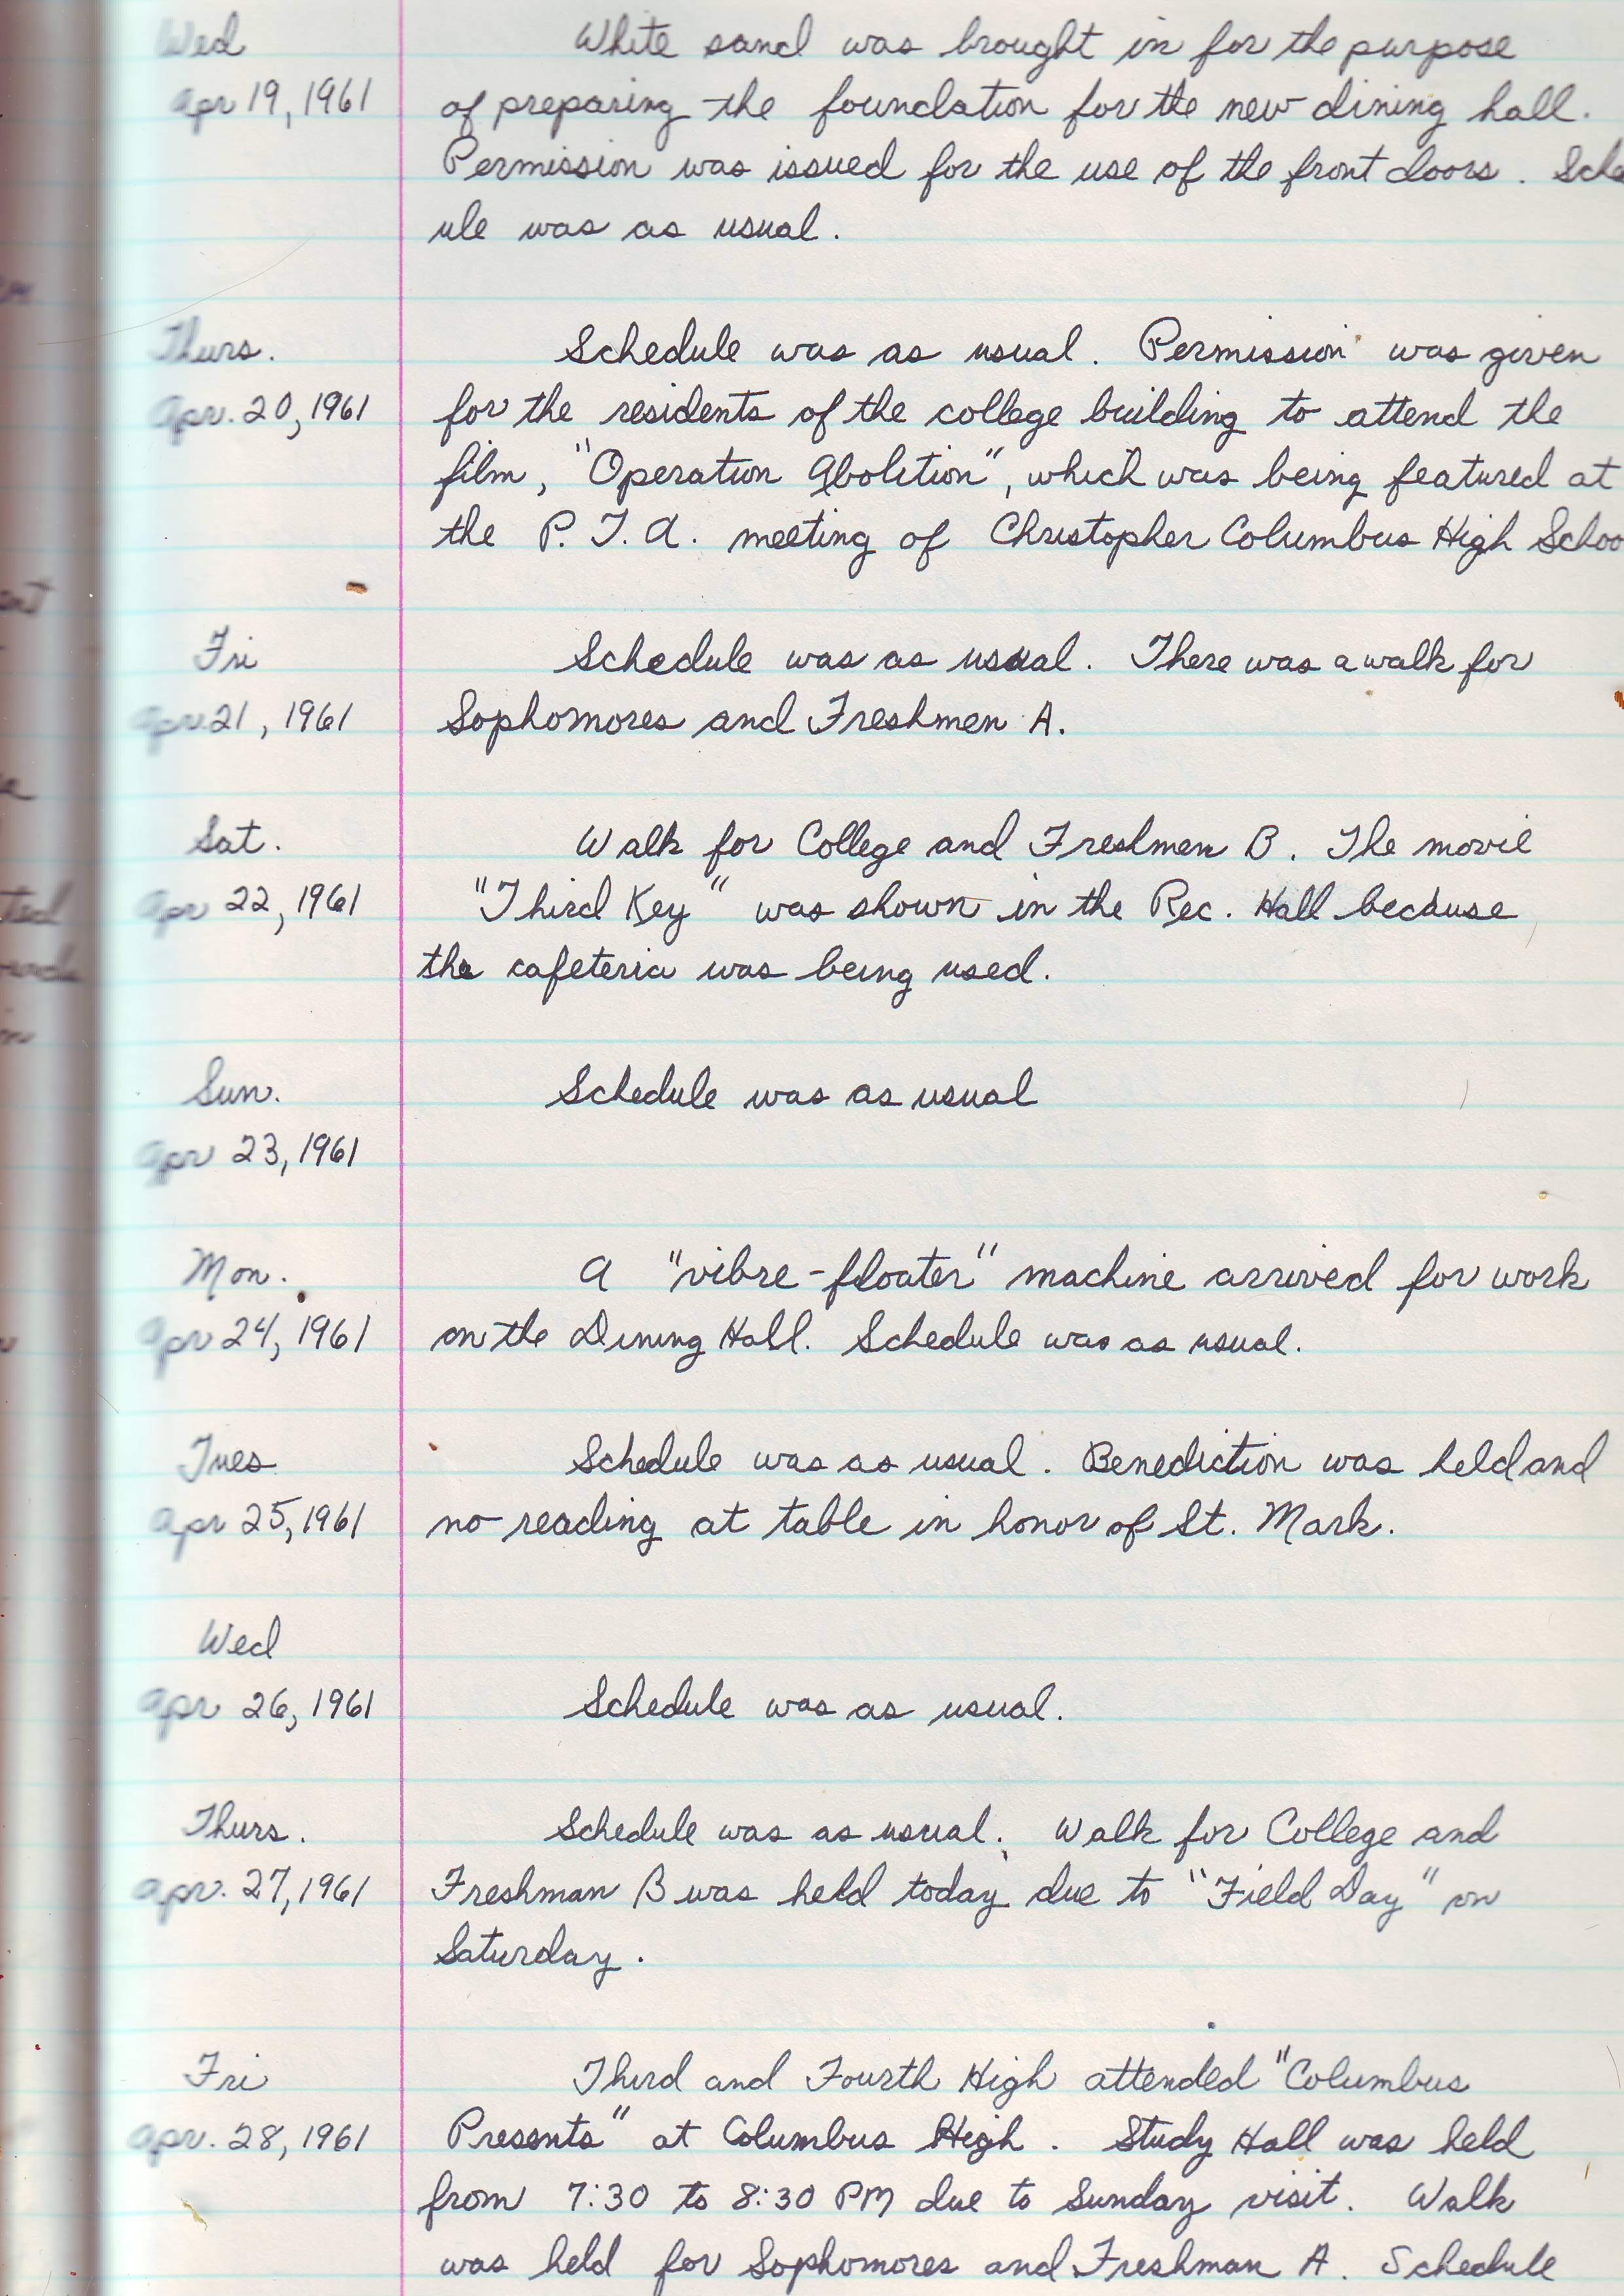 Wed White sand was brought in for the purpose
Apr 19, 1961 of preparing the foundation for the new dining hall.
Permission was issued for the use of the front doors. Sche
ule was as usual.
Thurs. Schedule was as usual. Permission was given
Apr. 20, 1961 for the residents of the college building to attend the
film, "Operation Abolition", which was being featured at
the P. T. A. meeting of Christopher Columbus High Schoo
Fri Schedule was as usual. There was a walk for
Apr. 21, 1961 Sophomores and Freshmen A.
Sat. Walk for College and Freshmen B. The movie
Apr 22, 1961 "Third Key" was shown in the Rec. Hall because
the cafeteria was being used.
Sun. Schedule was as usual
Apr 23, 1961
Mon. A "vibre-floater" machine arrived for work
Apr 24, 1961 on the Dining Hall. Schedule was as usual.
Tues Schedule was as usual. Benediction was held and
Apr 25, 1961 no reading at table in honor of St. Mark.
Wed
Apr 26, 1961 Schedule was as usual.
Thurs. Schedule was as usual. Walk for College and
Apr. 27, 1961 Freshman B was held today due to "Field Day" on
Saturday.
Fri Third and Fourth High attended "Columbus
Apr. 28, 1961 Presents" at Columbus High. Study Hall was held
from 7:30 to 8:30 PM due to Sunday visit. Walk
was held for Sophomores and Freshman A. Schedule